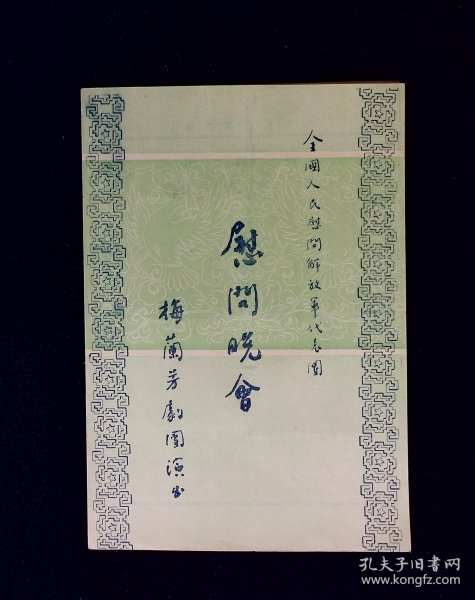 全國人民慰問解放軍代表團
慰問晚會
梅蘭芳劇團演出
孔夫子旧书网
www.kongfz.com